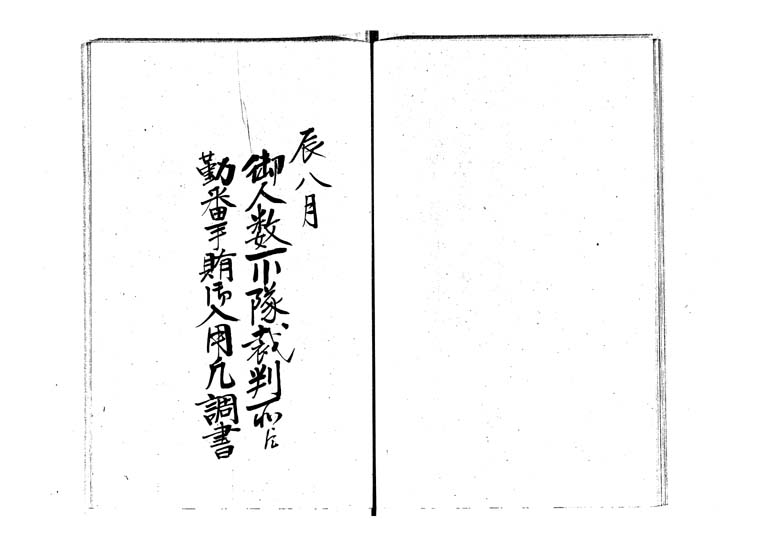 辰八月
御人数一小隊裁判所江
勤番手賄御入用凡調書